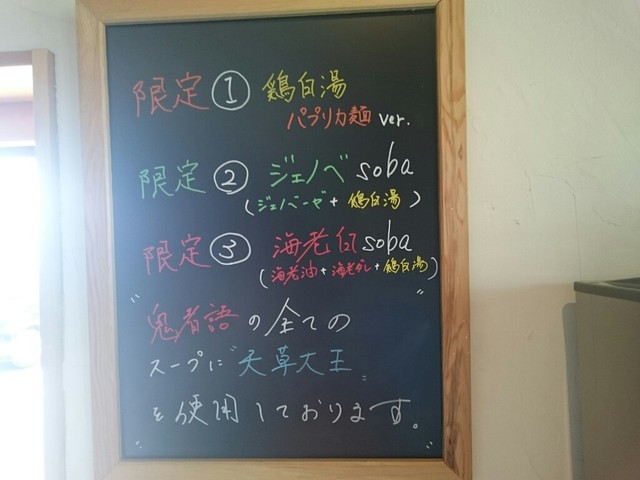 限定① 鶏白湯
パプリカ麺 ver.
限定② ジェノベsoba
(ジェノベーゼ+鶏白湯)
限定③ 海老白soba
(海老油+海老ダレ+鶏白湯)
〝鬼者語の全ての〟
スープに〝天草大王〟
を使用しております。